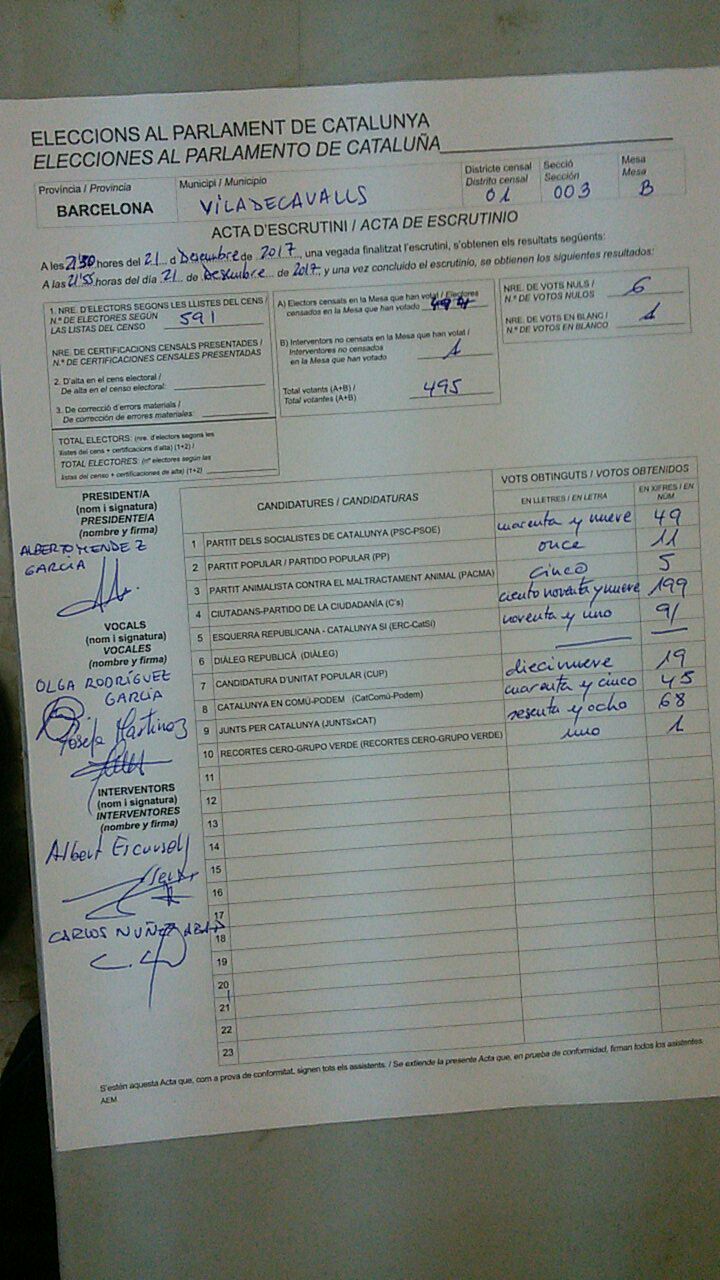 ELECCIONS AL PARLAMENT DE CATALUNYA
ELECCIONES AL PARLAMENTO DE CATALUÑA
Província / Provincia
BARCELONA
Municipi / Municipio
VILADECAVALLS
Districte censal
Distrito censal
01
Secció
Sección
003
Mesa
Mesa
B
ACTA D'ESCRUTINI / ACTA DE ESCRUTINIO
A les 21'30 hores del 21 d Desembre de 2017, una vegada finalitzat l'escrutini, s'obtenen els resultats següents:
A las 21'55 horas del día 21 de Desembre de 2017 y una vez concluido el escrutinio, se obtienen los siguientes resultados:
1. NRE. D'ELECTORS SEGONS LES LLISTES DEL CENS /
N.º DE ELECTORES SEGÚN
LAS LISTAS DEL CENSO 591
NRE. DE CERTIFICACIONS CENSALS PRESENTADES /
N.º DE CERTIFICACIONES CENSALES PRESENTADAS
2. D'alta en el cens electoral /
De alta en el censo electoral:
3. De correcció d'errors materials /
De corrección de errores materiales:
TOTAL ELECTORS: (nre. d'electors segons les
llistes del cens + certificacions d'alta) (1+2) /
TOTAL ELECTORES: (nº electores según las
listas del censo + certificaciones de alta) (1+2)
A) Electors censats en la Mesa que han votat / Electores
censados en la Mesa que han votado
B) Interventors no censats en la Mesa que han votat /
Interventores no censados
en la Mesa que han votado 1
Total votants (A+B) /
Total votantes (A+B) 495
NRE. DE VOTS NULS /
N.º DE VOTOS NULOS 6
NRE. DE VOTS EN BLANC /
N.º DE VOTOS EN BLANCO 1
PRESIDENT/A
(nom i signatura)
PRESIDENTE/A
(nombre y firma)
ALBERTO MENDEZ
GARCIA
VOCALS
(nom i signatura)
VOCALES
(nombre y firma)
OLGA RODRÍGUEZ
GARCIA
Josefa Martinez
INTERVENTORS
(nom i signatura)
INTERVENTORES
(nombre y firma)
Albert Escursell
CARLOS NUÑEZ ABAD
CANDIDATURES / CANDIDATURAS
VOTS OBTINGUTS / VOTOS OBTENIDOS
EN LLETRES / EN LETRA
EN XIFRES / EN NÚM
1 PARTIT DELS SOCIALISTES DE CATALUNYA (PSC-PSOE) cuarenta y nueve 49
2 PARTIT POPULAR / PARTIDO POPULAR (PP) once 11
3 PARTIT ANIMALISTA CONTRA EL MALTRACTAMENT ANIMAL (PACMA) cinco 5
4 CIUTADANS-PARTIDO DE LA CIUDADANÍA (C's) ciento noventa y nueve 199
5 ESQUERRA REPUBLICANA - CATALUNYA SI (ERC-CatSí) noventa y uno 91
6 DIÀLEG REPUBLICÀ (DIÀLEG)
7 CANDIDATURA D'UNITAT POPULAR (CUP) diecinueve 19
8 CATALUNYA EN COMÚ-PODEM (CatComú-Podem) cuarenta y cinco 45
9 JUNTS PER CATALUNYA (JUNTSxCAT) sesenta y ocho 68
10 RECORTES CERO-GRUPO VERDE (RECORTES CERO-GRUPO VERDE) uno 1
11
12
13
14
15
16
17
18
19
20
21
22
23
S'estén aquesta Acta que, com a prova de conformitat, signen tots els assistents. / Se extiende la presente Acta que, en prueba de conformidad, firman todos los asistentes.
AEM